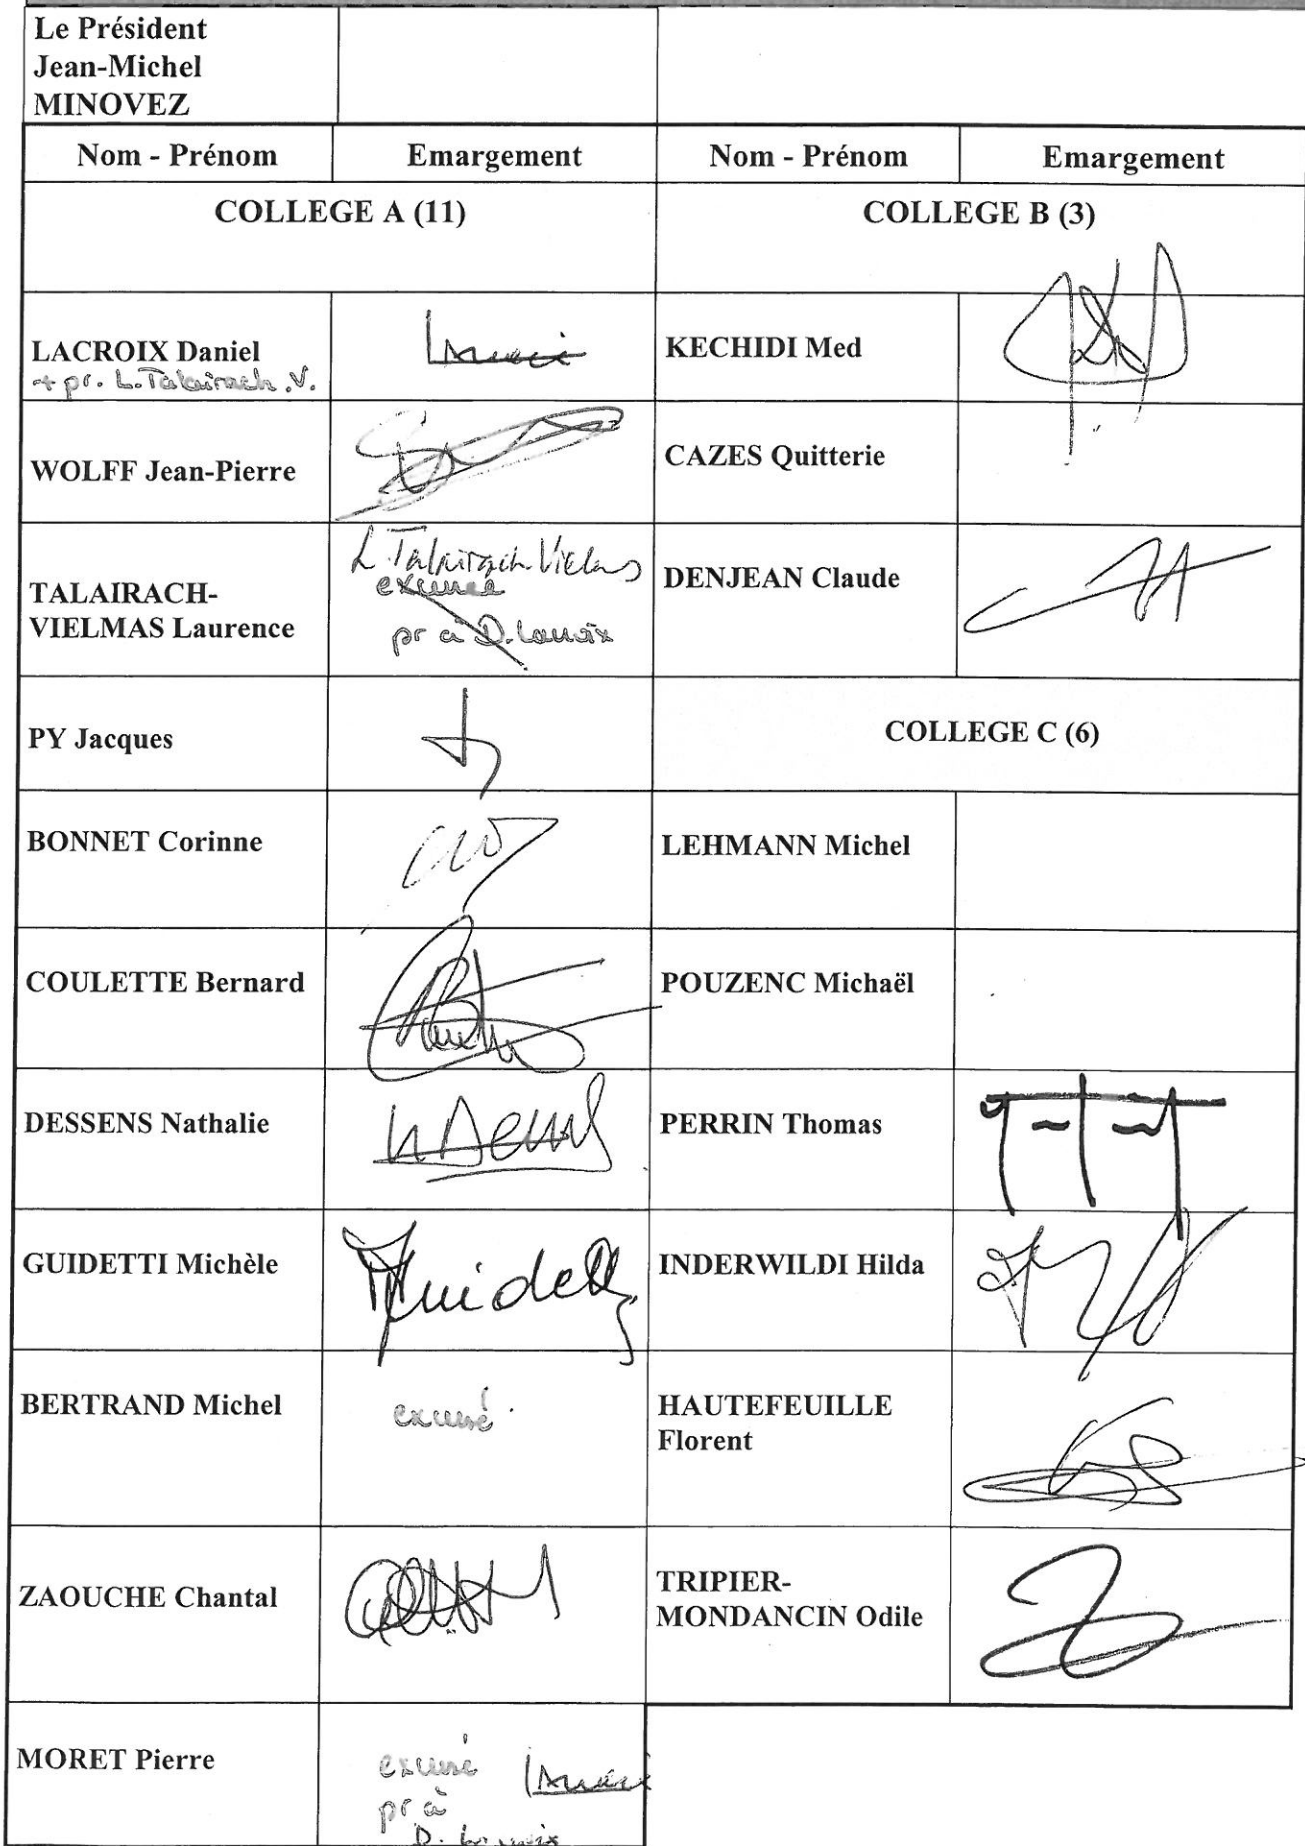 Le Président
Jean-Michel
MINOVEZ
Nom - Prénom Emargement Nom - Prénom Emargement
COLLEGE A (11) COLLEGE B (3)
LACROIX Daniel KECHIDI Med
+ pr. L. Talairach.V.
WOLFF Jean-Pierre CAZES Quitterie
L. Talairach Vielmas
excusée
TALAIRACH- DENJEAN Claude
VIELMAS Laurence
pr à D. Lacroix
PY Jacques COLLEGE C (6)
BONNET Corinne LEHMANN Michel
COULETTE Bernard POUZENC Michaël
DESSENS Nathalie PERRIN Thomas
GUIDETTI Michèle Guidetti INDERWILDI Hilda
BERTRAND Michel excusé HAUTEFEUILLE
Florent
ZAOUCHE Chantal TRIPIER-
MONDANCIN Odile
MORET Pierre excusé
pr à
D. Lacroix